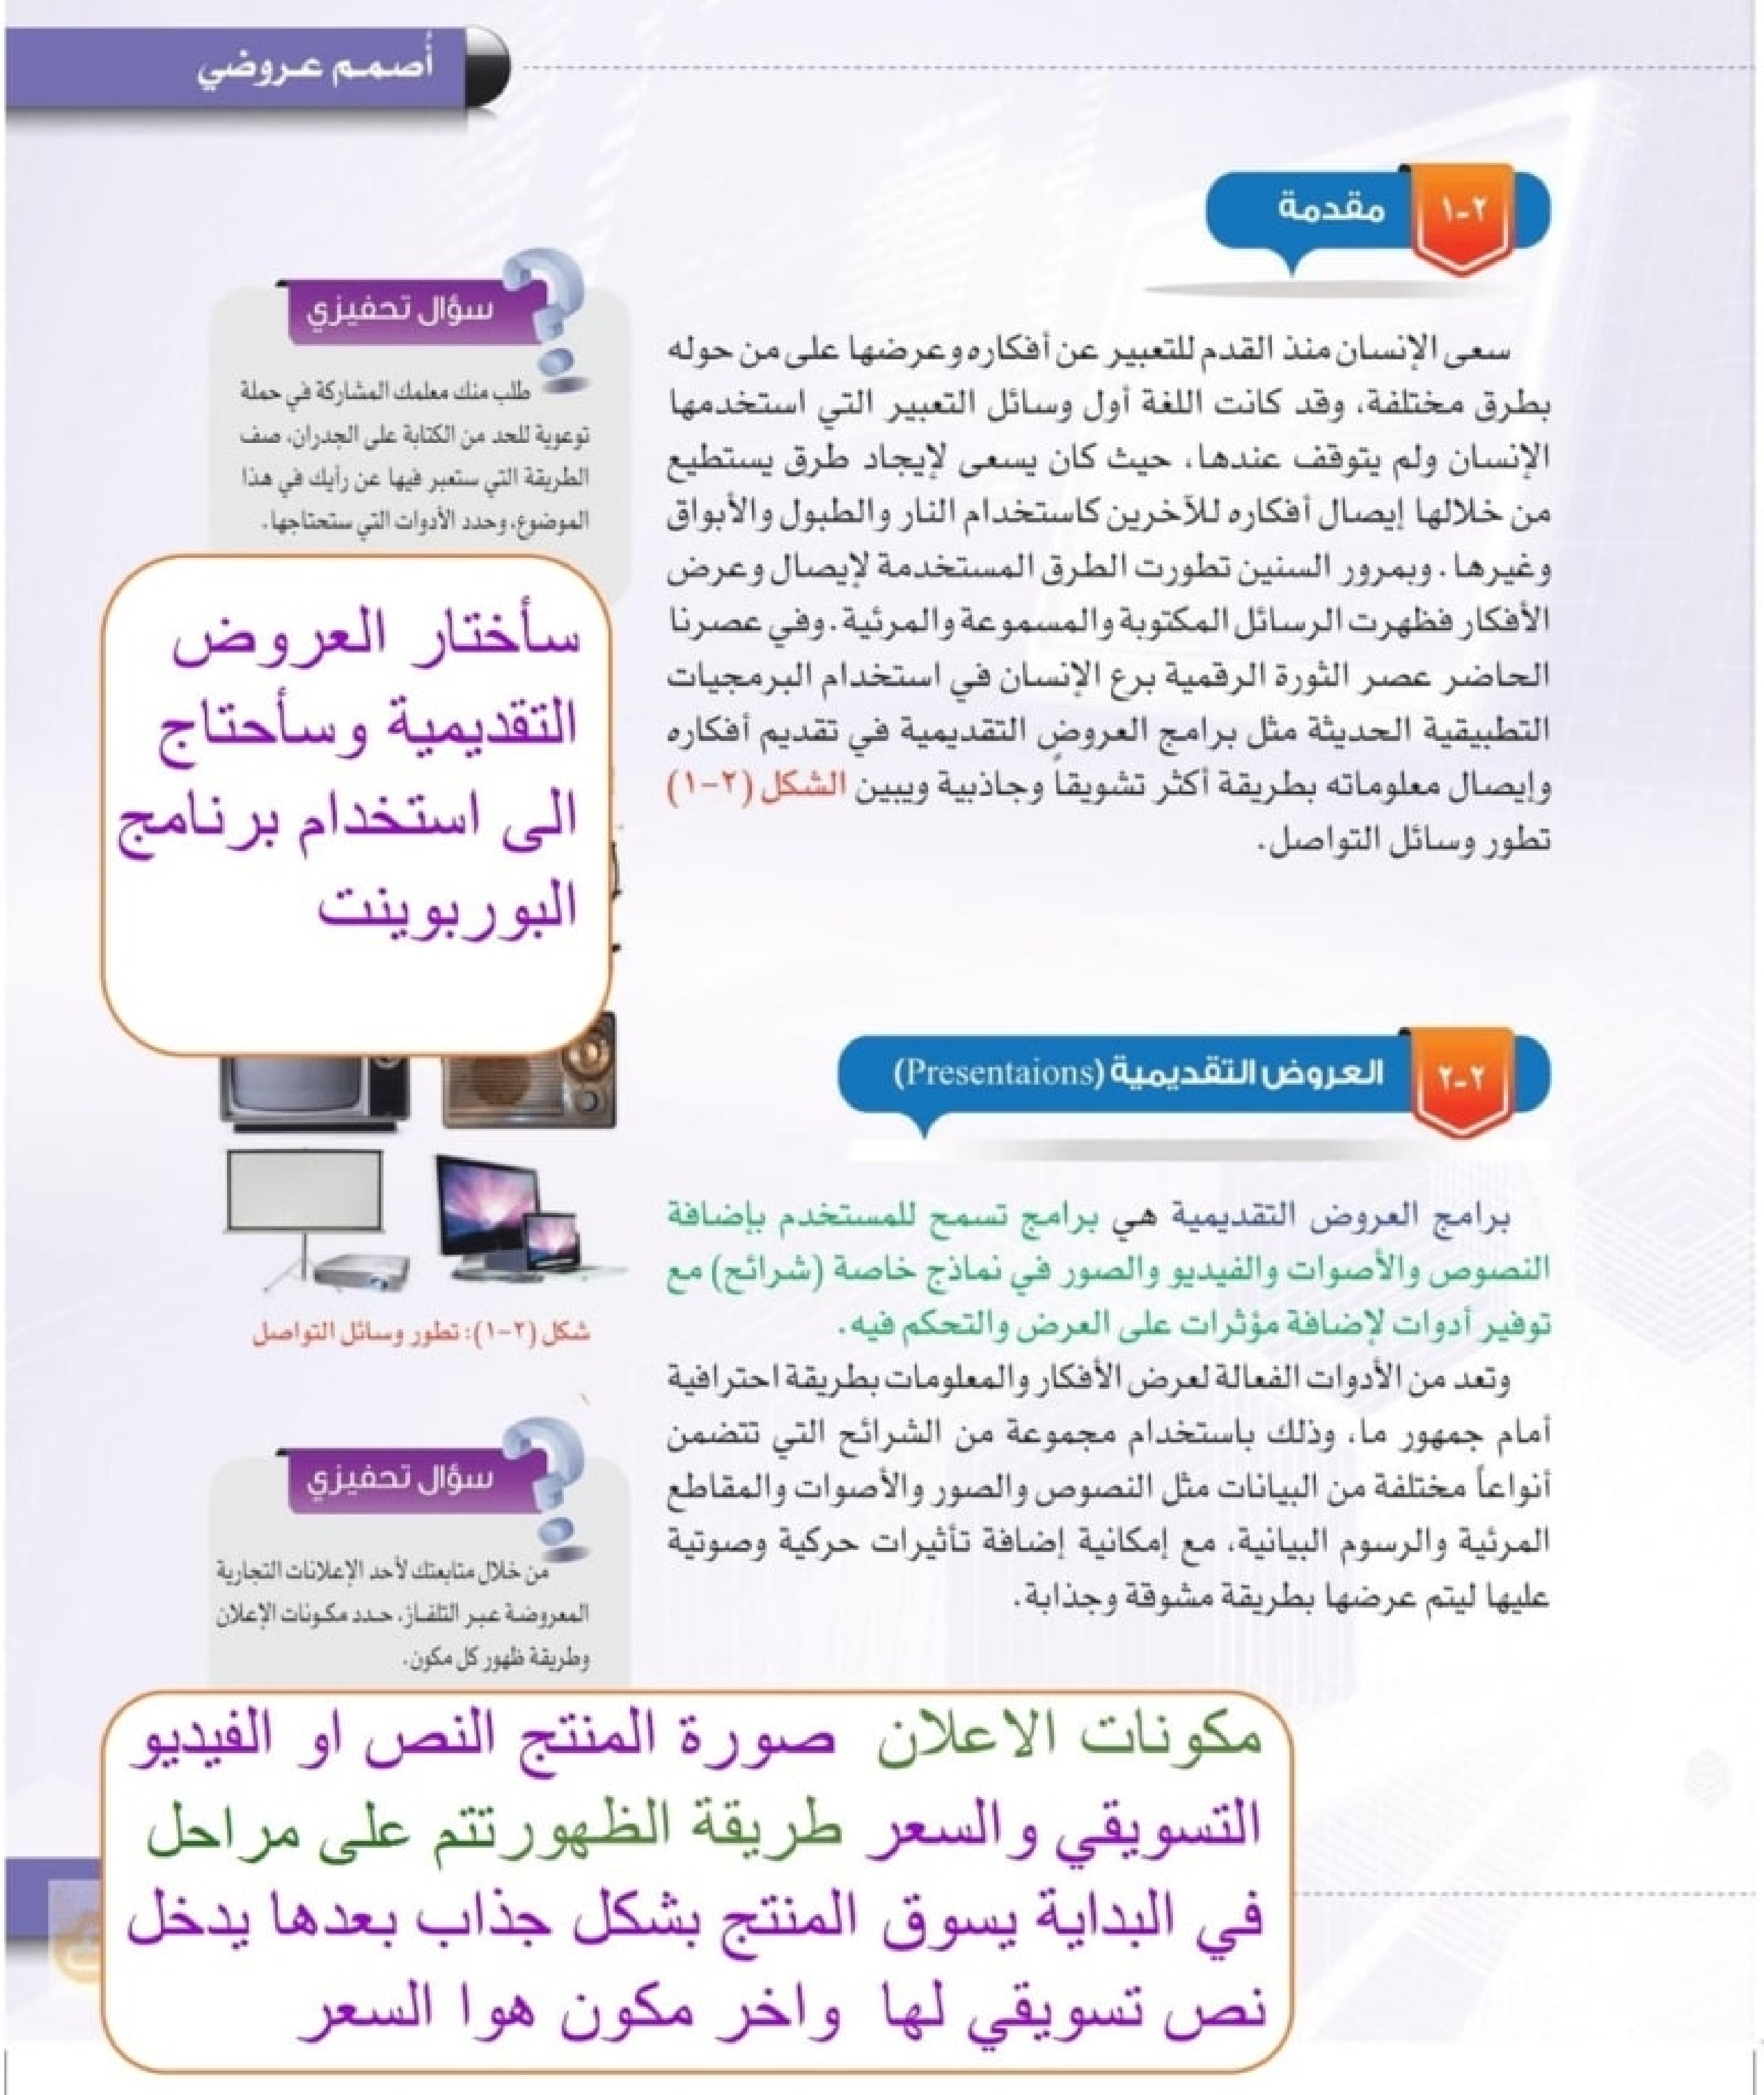 أصمم عروضي
٢-١ مقدمة
سعى الإنسان منذ القدم للتعبير عن أفكاره وعرضها على من حوله
بطرق مختلفة، وقد كانت اللغة أول وسائل التعبير التي استخدمها
الإنسان ولم يتوقف عندها، حيث كان يسعى لإيجاد طرق يستطيع
من خلالها إيصال أفكاره للآخرين كاستخدام النار والطبول والأبواق
وغيرها. وبمرور السنين تطورت الطرق المستخدمة لإيصال وعرض
الأفكار فظهرت الرسائل المكتوبة والمسموعة والمرئية. وفي عصرنا
الحاضر عصر الثورة الرقمية برع الإنسان في استخدام البرمجيات
التطبيقية الحديثة مثل برامج العروض التقديمية في تقديم أفكاره
وإيصال معلوماته بطريقة أكثر تشويقاً وجاذبية ويبين الشكل (٢-١)
تطور وسائل التواصل.
سؤال تحفيزي
طلب منك معلمك المشاركة في حملة
توعوية للحد من الكتابة على الجدران، صف
الطريقة التي ستعبر فيها عن رأيك في هذا
الموضوع، وحدد الأدوات التي ستحتاجها.
سأختار العروض
التقديمية وسأحتاج
الى استخدام برنامج
البوربوينت
٢-٢ العروض التقديمية (Presentaions)
برامج العروض التقديمية هي برامج تسمح للمستخدم بإضافة
النصوص والأصوات والفيديو والصور في نماذج خاصة (شرائح) مع
توفير أدوات لإضافة مؤثرات على العرض والتحكم فيه.
وتعد من الأدوات الفعالة لعرض الأفكار والمعلومات بطريقة احترافية
أمام جمهور ما، وذلك باستخدام مجموعة من الشرائح التي تتضمن
أنواعاً مختلفة من البيانات مثل النصوص والصور والأصوات والمقاطع
المرئية والرسوم البيانية، مع إمكانية إضافة تأثيرات حركية وصوتية
عليها ليتم عرضها بطريقة مشوقة وجذابة.
شكل (٢-١): تطور وسائل التواصل
سؤال تحفيزي
من خلال متابعتك لأحد الإعلانات التجارية
المعروضة عبر التلفاز، حدد مكونات الإعلان
وطريقة ظهور كل مكون.
مكونات الاعلان صورة المنتج النص او الفيديو
التسويقي والسعر طريقة الظهور تتم على مراحل
في البداية يسوق المنتج بشكل جذاب بعدها يدخل
نص تسويقي لها واخر مكون هوا السعر